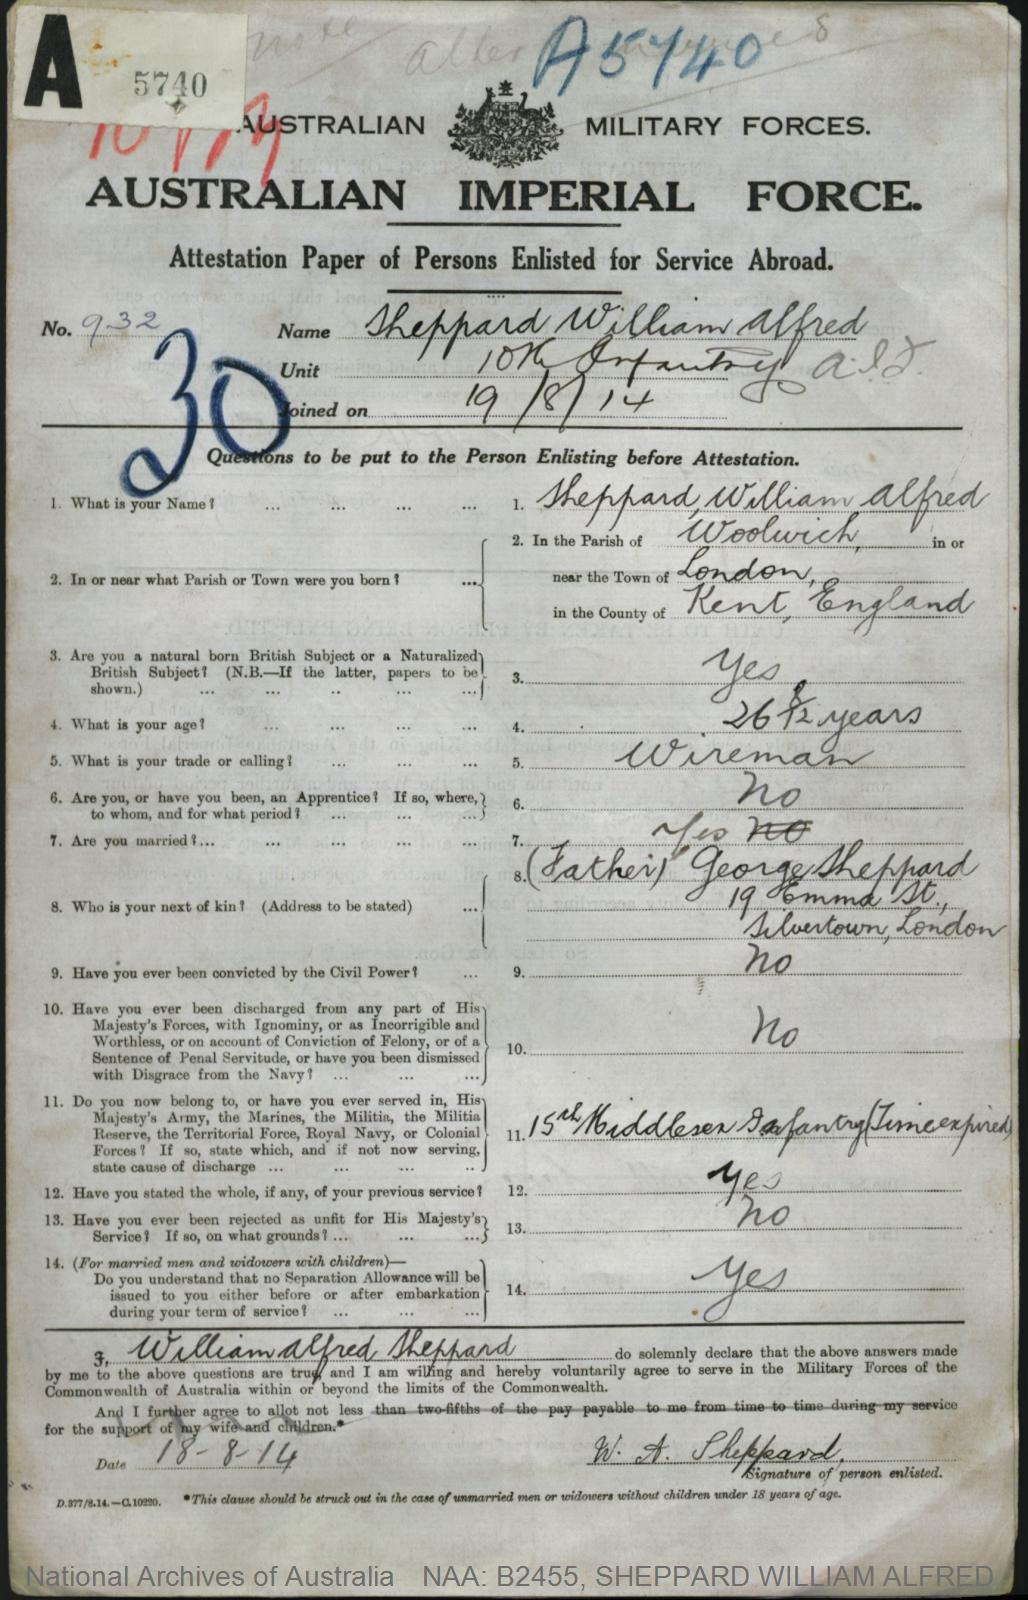 A
5740
A5740
AUSTRALIAN MILITARY FORCES.
AUSTRALIAN IMPERIAL FORCE.
Attestation Paper of Persons Enlisted for Service Abroad.
No. 932
Name Sheppard William Alfred
30
Unit 10th Infantry A.I.F.
Joined on 19/8/14
Questions to be put to the Person Enlisting before Attestation.
1. What is your Name? ... ... ... ... 1. Sheppard, William Alfred
2. In or near what Parish or Town were you born? ... 2. In the Parish of Woolwich, in or
near the Town of London,
in the County of Kent, England
3. Are you a natural born British Subject or a Naturalized
British Subject? (N.B.—If the latter, papers to be
shown.) ... ... .. ... ... 3. Yes
4. What is your age? ... ... ... ... 4. 26 8/12 years
5. What is your trade or calling? ... ... ... 5. Wireman
6. Are you, or have you been, an Apprentice? If so, where,
to whom, and for what period? ... ... ... 6. No
7. Are you married?... ... ... ... ... 7. Yes No
8. Who is your next of kin? (Address to be stated) ... 8. (Father) George Sheppard
19 Emma St.,
Silvertown, London
9. Have you ever been convicted by the Civil Power? ... 9. No
10. Have you ever been discharged from any part of His
Majesty's Forces, with Ignominy, or as Incorrigible and
Worthless, or on account of Conviction of Felony, or of a
Sentence of Penal Servitude, or have you been dismissed
with Disgrace from the Navy? ... ... ... 10. No
11. Do you now belong to, or have you ever served in, His
Majesty's Army, the Marines, the Militia, the Militia
Reserve, the Territorial Force, Royal Navy, or Colonial
Forces? If so, state which, and if not now serving,
state cause of discharge ... ... ... .. 11. 15th Middlesex Infantry (Time expired)
12. Have you stated the whole, if any, of your previous service? 12. Yes
13. Have you ever been rejected as unfit for His Majesty's
Service? If so, on what grounds? ... ... ... 13. No
14. (For married men and widowers with children)—
Do you understand that no Separation Allowance will be
issued to you either before or after embarkation
during your term of service? ... ... ... 14. Yes
I, William Alfred Sheppard do solemnly declare that the above answers made
by me to the above questions are true, and I am willing and hereby voluntarily agree to serve in the Military Forces of the
Commonwealth of Australia within or beyond the limits of the Commonwealth.
And I further agree to allot not less than two-fifths of the pay payable to me from time to time during my service
for the support of my wife and children.*
Date 18-8-14
W. A. Sheppard.
Signature of person enlisted.
D.377/8.14.—C.10220. *This clause should be struck out in the case of unmarried men or widowers without children under 18 years of age.
National Archives of Australia NAA: B2455, SHEPPARD WILLIAM ALFRED